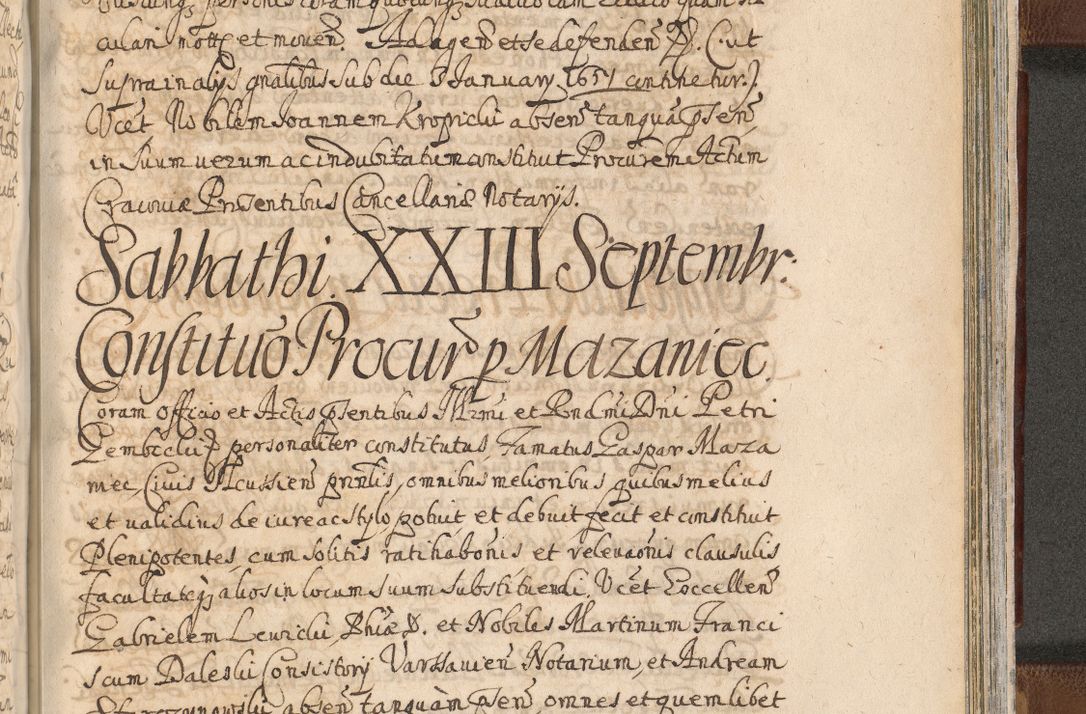 culan mottę et mouen. Ad agen et se defenden &. Cut
supra in alijs gnalibus sub die 3 January 1651 continetur.
Vcet Nobilem Joannem Kropiclii absen tanqua psen
in suum uerum ac indubitatum constituit Procurem Actum
Cracouiæ Præsentibus Cancellariæ Notarijs.
Sabbathi. XXIII Septembr:
Constituō Procur̃ p Mazaniec.
Coram officio et Actis psentibus Illrmi et Rndmi Dni Petri
Gembiclii & personaliter constitutus Famatus Gaspar Maza
niec, Ciuis Ilcussien prinlis, omnibus melioribus quibus melius
et ualidius de iure ac stylo pobuit et debuit fecit et constituit
Plenipotentes, cum solitis ratihabonis et releuaonis clausulis
facultateqz alios in locum suum substituendi, Vcet Eoccellen
Gabrielem Leuriclii, Phiæ D. et Nobiles Martinum Franci
scum Daleslii Consistorij Varssauien Notarium, et Andream
absen tanquàm psen omnes et quemlibet